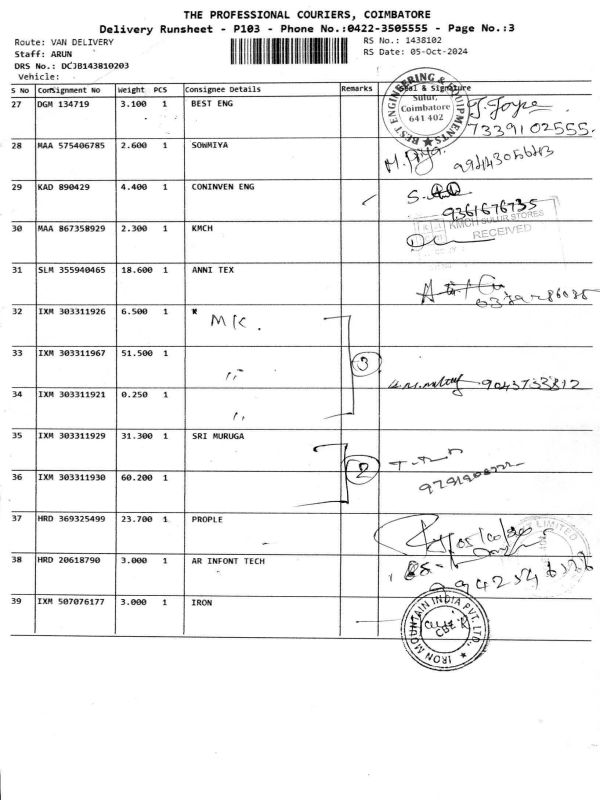 THE PROFESSIONAL COURIERS, COIMBATORE
Delivery Runsheet - P103 - Phone No.:0422-3505555 - Page No.:3
Route: VAN DELIVERY
RS No.: 1438102
Staff: ARUN
RS Date: 05-Oct-2024
DRS No.: DCJB143810203
Vehicle:
S No Consignment No Weight PCS Consignee Details Remarks Seal & Signature
27 DGM 134719 3.100 1 BEST ENG
BEST ENGINEERING & EQUIPMENTS
Sulur,
Coimbatore
641 402
J. Joyce
7339102555.
28 MAA 575406785 2.600 1 SOWMIYA
29 KAD 890429 4.400 1 CONINVEN ENG
9361676735
30 MAA 867358929 2.300 1 KMCH
KMCH SULUR STORES
RECEIVED
31 SLM 355940465 18.600 1 ANNI TEX
32 IXM 303311926 6.500 1 *
MK.
33 IXM 303311967 51.500 1
〃
3
9043733812
34 IXM 303311921 0.250 1
〃
35 IXM 303311929 31.300 1 SRI MURUGA
2
36 IXM 303311930 60.200 1
37 HRD 369325499 23.700 1 PROPLE
LIMITED
38 HRD 20618790 3.000 1 AR INFONT TECH
39 IXM 507076177 3.000 1 IRON
IRON MOUNTAIN INDIA PVT. LTD.,